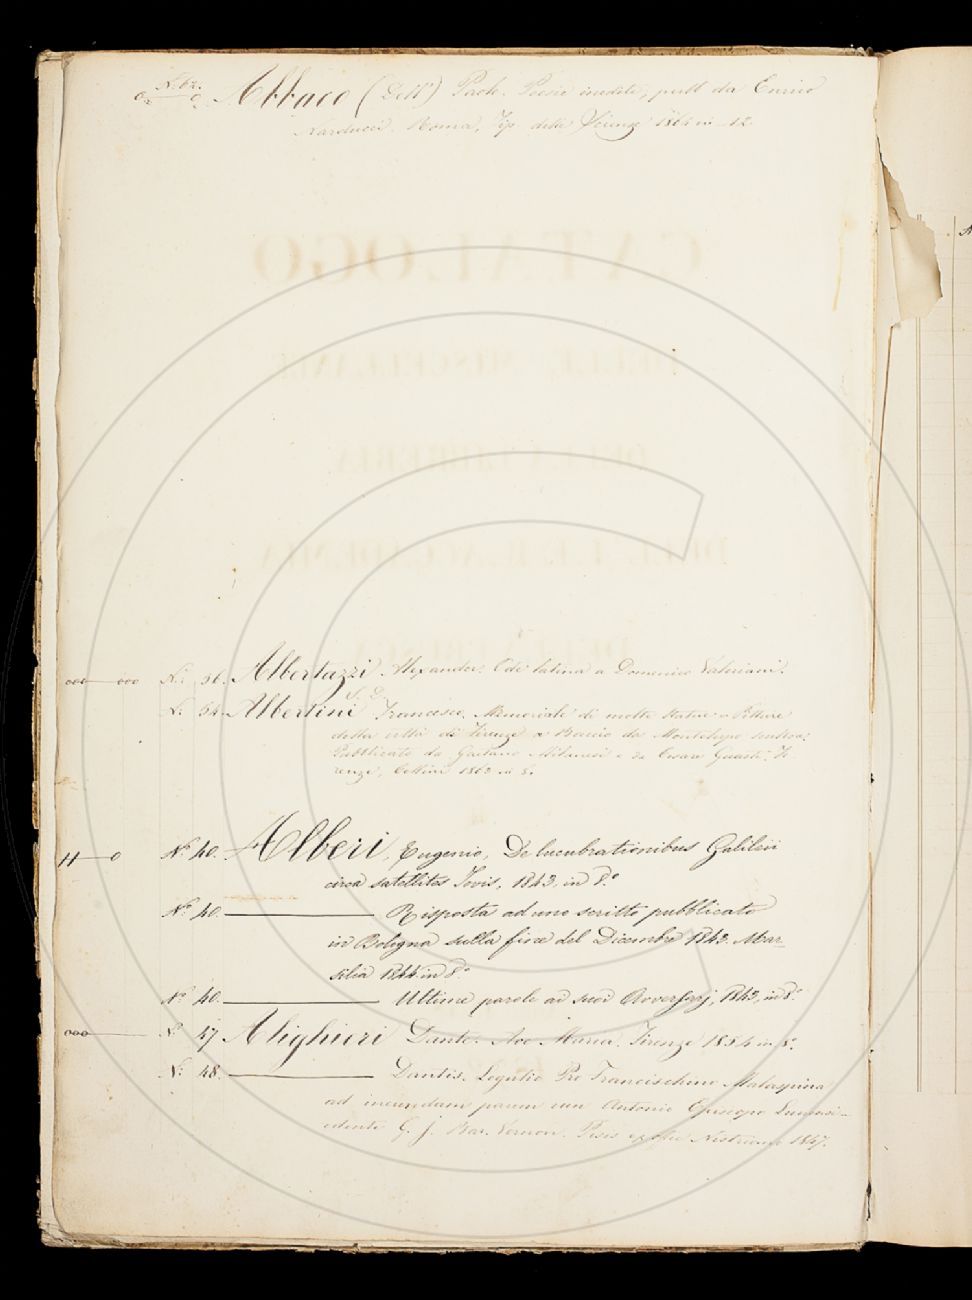 N. 62. Abbaco (Dell') Paolo. Poesie inedite, pubb. da Enrico
Narducci. Roma, Tip. delle Scienze 1864 in 12.
CATALOGO
DELLE MISCELLANEE
DELLA LIBRERIA
DELL' I. E R. ACCADEMIA
DELLA CRUSCA
N. 56. Albertazzi Alexander. Ode latina a Domenico Valeriani.
N. 64. Albertini Francesco, Memoriale di molte Statue e Pitture
della città di Firenze a Baccio da Montelupo scultore;
Pubblicato da Gaetano Milanesi e da Cesare Guasti. Fi
renze, Cellini 1863 in 8.°
N.° 40. Alberi, Eugenio, De lucubrationibus Galilei
circa satellites Jovis, 1843. in 8.°
N.° 40. Risposta ad uno scritto pubblicato
in Bologna sulla fine del Dicembre 1843. Mar-
silia 1844. in 8.°
N.° 40. Ultime parole ai suoi Avversarj, 1843, in 8.°
N.° 47. Alighieri Dante. Ave Maria. Firenze 1854 in 8.°
N.° 48. Dantis. Legatio Pro Franceschino Malaspina
ad ineundam pacem cum Antonio Episcopo Lunensi
edente G. J. Bar. Vernon. Pisis ex offic. Nistriana 1847.